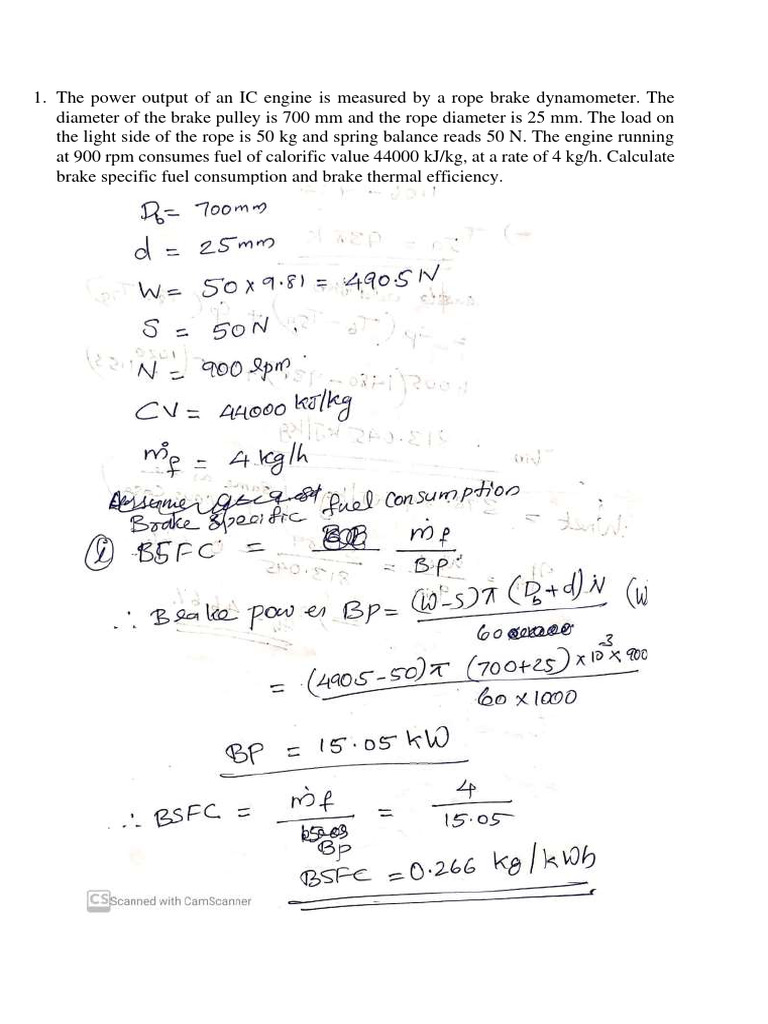 1. The power output of an IC engine is measured by a rope brake dynamometer. The
diameter of the brake pulley is 700 mm and the rope diameter is 25 mm. The load on
the light side of the rope is 50 kg and spring balance reads 50 N. The engine running
at 900 rpm consumes fuel of calorific value 44000 kJ/kg, at a rate of 4 kg/h. Calculate
brake specific fuel consumption and brake thermal efficiency.
D_b = 700mm
d = 25mm
W = 50 x 9.81 = 490.5 N
S = 50N.
N = 900 rpm
CV = 44000 kJ/kg
ṁ_f = 4 kg/h
fuel consumption
Brake specific
(i) BSFC = ṁ_f
= B.P
∴ Brake power BP = (W-S)π (D_b+d) N (W
60
= (490.5-50)π (700+25) x 10^-3 x 900
60 x 1000
BP = 15.05 kW
∴ BSFC = ṁ_f = 4
15.05
BP
BSFC = 0.266 kg/kWh
CS Scanned with CamScanner